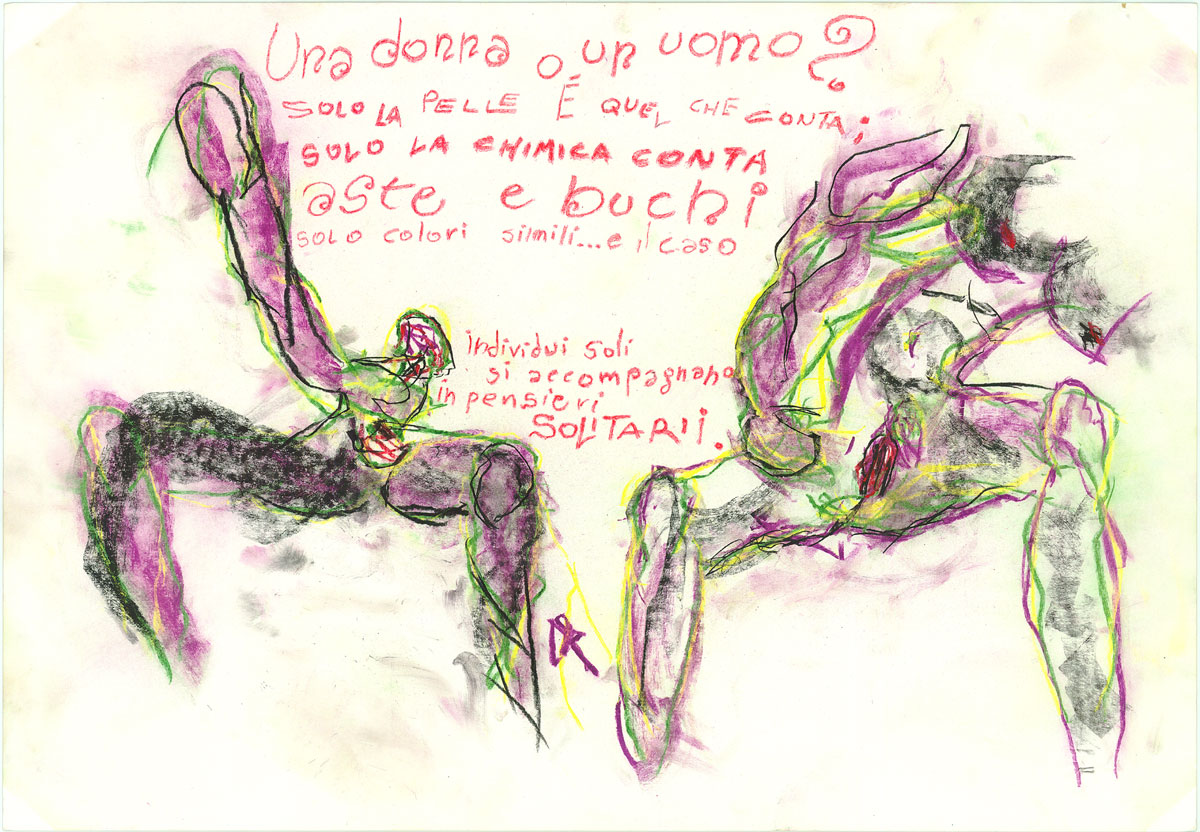 Una donna o un uomo?
SOLO LA PELLE É QUEL CHE CONTA;
SOLO LA CHIMICA CONTA
aste e buchi
solo colori simili...e il caso
individui soli
si accompagnano
in pensieri
SOLITARII.